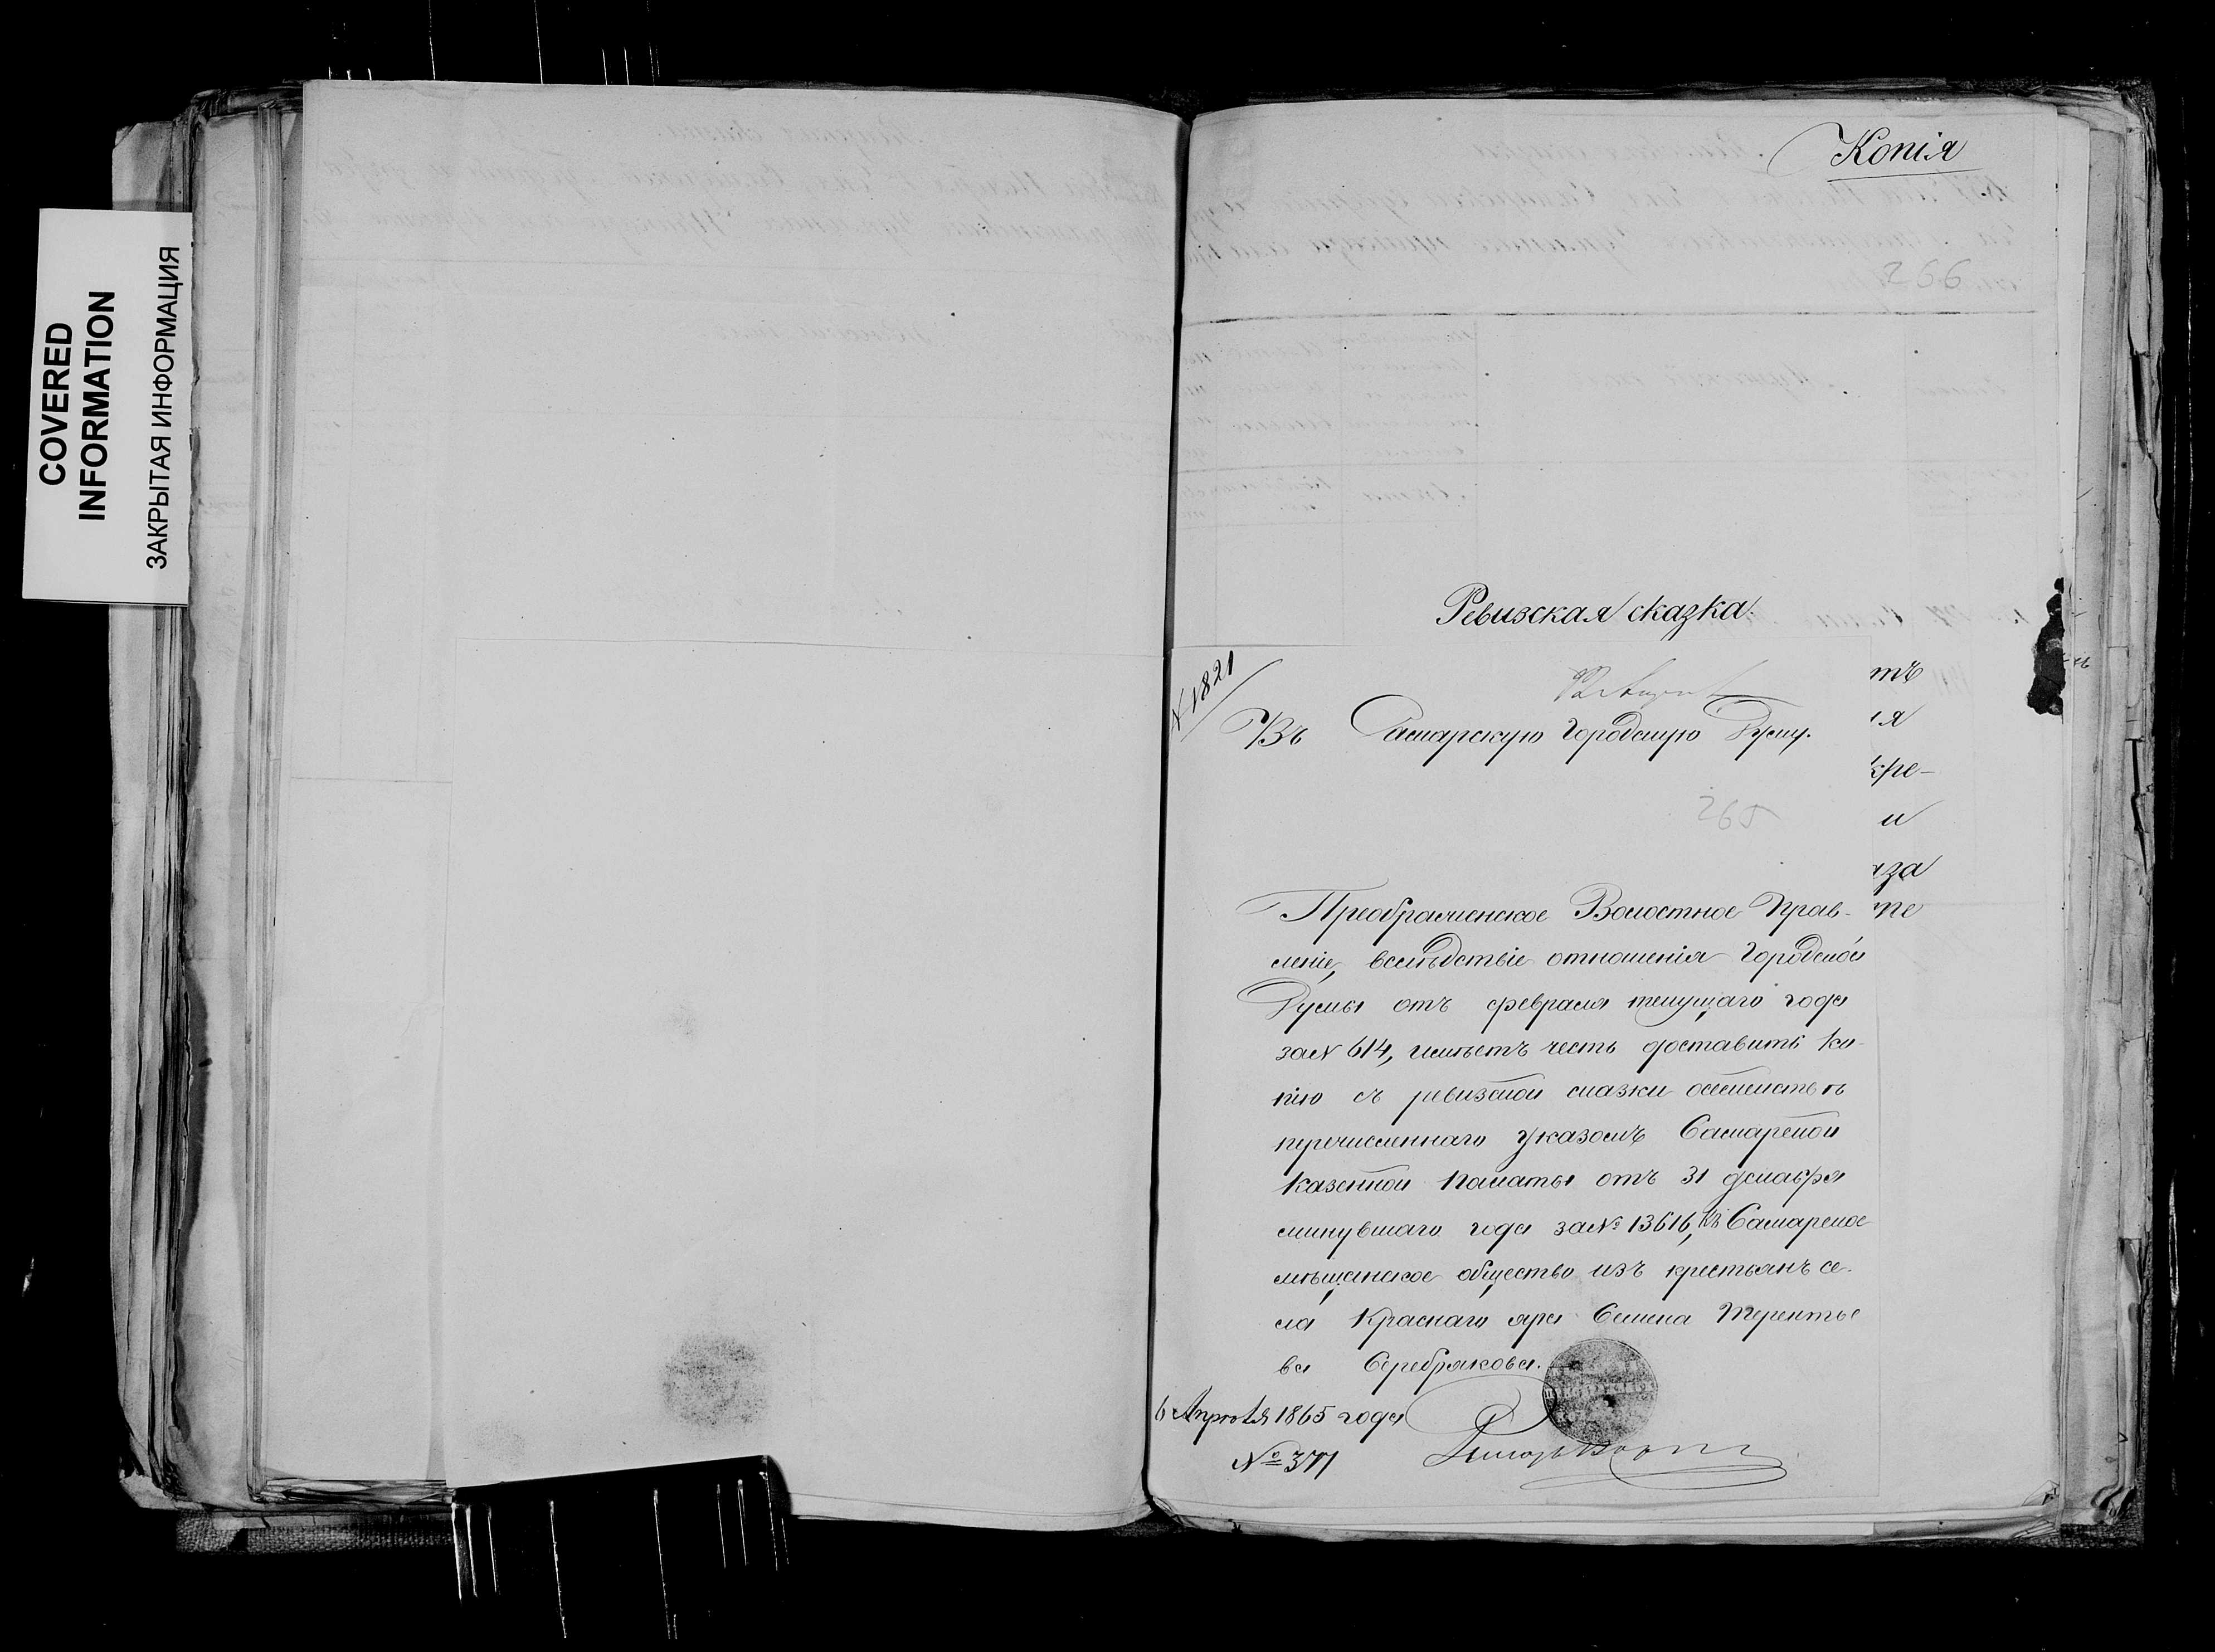 COVERED
INFORMATION
ЗАКРЫТАЯ ИНФОРМАЦИЯ
Копія
266
Ревизская сказка.
тъ
ія
кре-
и
аза
№ 1821
Въ Самарскую Городскую Думу.
265
Преображенское Волостное Прав-
леніе, вслѣдствіе отношенія Городской
Думы отъ февраля текущаго года
за № 614, имѣетъ честь доставить ко-
пію съ ревизской сказки о семействѣ
перечисленнаго указомъ Самарской
Казенной Палаты отъ 31 декабря
минувшаго года за № 13616, къ Самарское
мѣщанское общество изъ крестьянъ се-
ла Краснаго яра Семена Терентье
ва Серебрякова.
6 Апрѣля 1865 года
№ 371